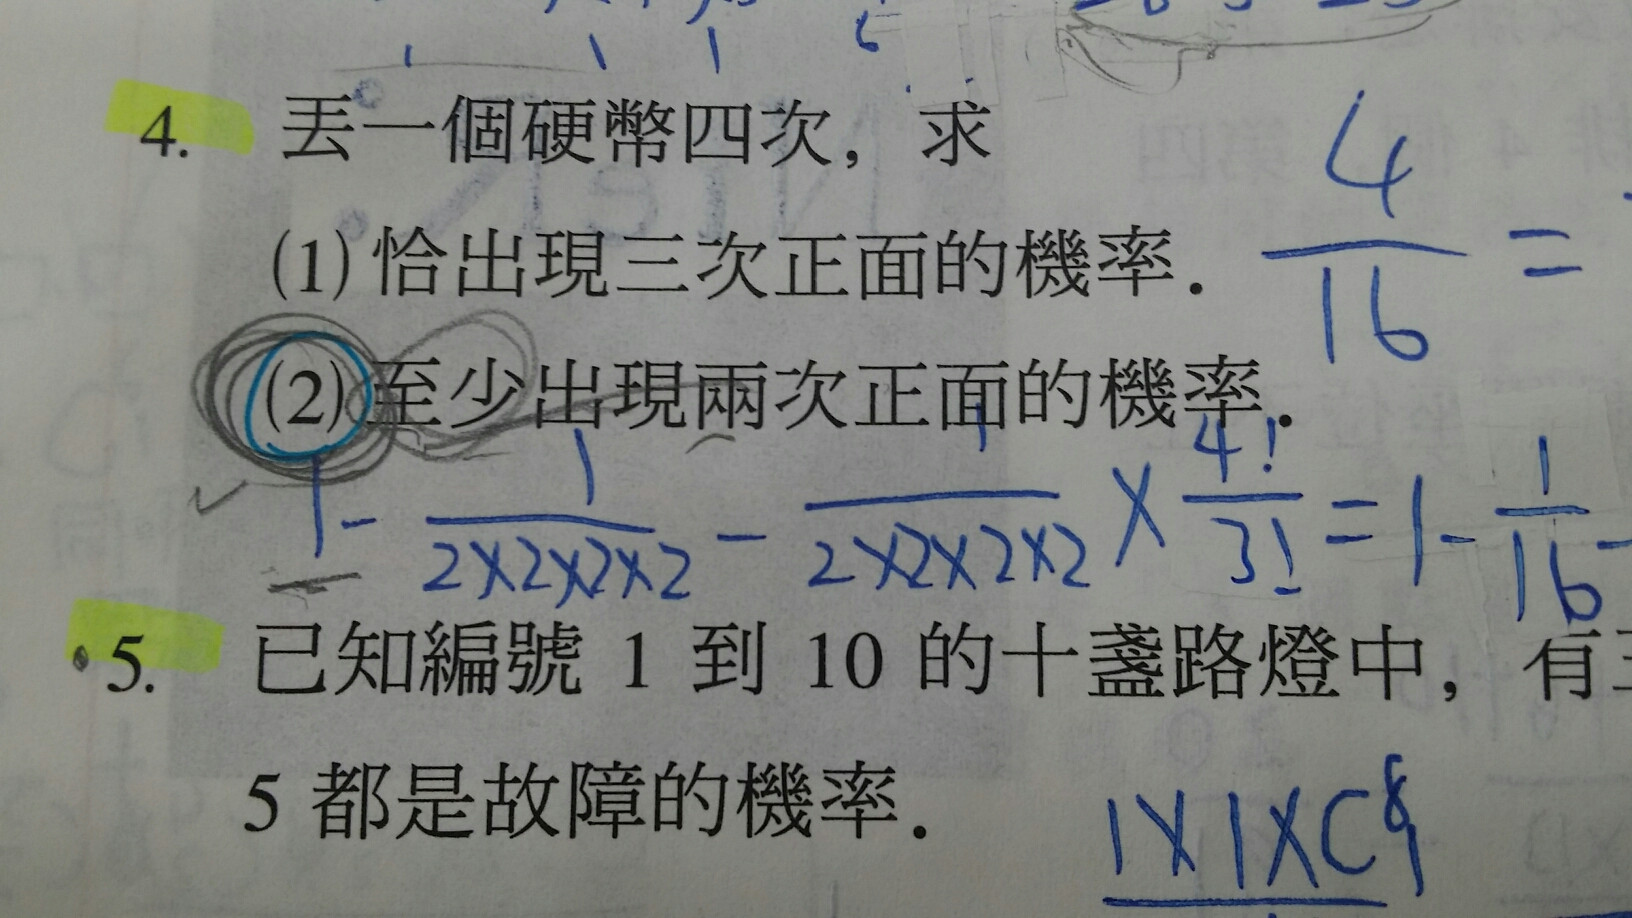 4. 丟一個硬幣四次，求
(1) 恰出現三次正面的機率．
4/16 =
(2) 至少出現兩次正面的機率．
1 - 1/2×2×2×2 - 1/2×2×2×2 × 4!/3! = 1 - 1/16 -
5. 已知編號 1 到 10 的十盞路燈中，有
5 都是故障的機率．
1×1×C⁸₁